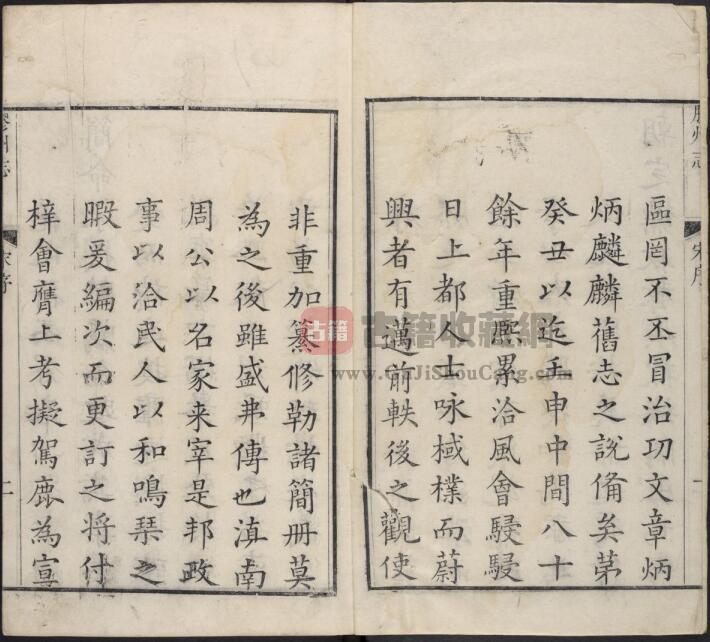 膠州志
宋序
一
區罔不丕冒治功文章炳
炳麟麟舊志之說備矣苐
癸丑以迄壬申中間八十
餘年重熈累洽風會駸駸
日上都人士咏棫樸而蔚
興者有邁前軼後之觀使
非重加纂修勒諸簡册莫
為之後雖盛弗傳也滇南
周公以名家来宰是邦政
事以洽民人以和鳴琴之
暇爰編次而更訂之将付
梓會膺上考擬駕鹿為宣
膠州志
宋序
二
古籍
古籍收藏網
www.GuJiShouCang.com